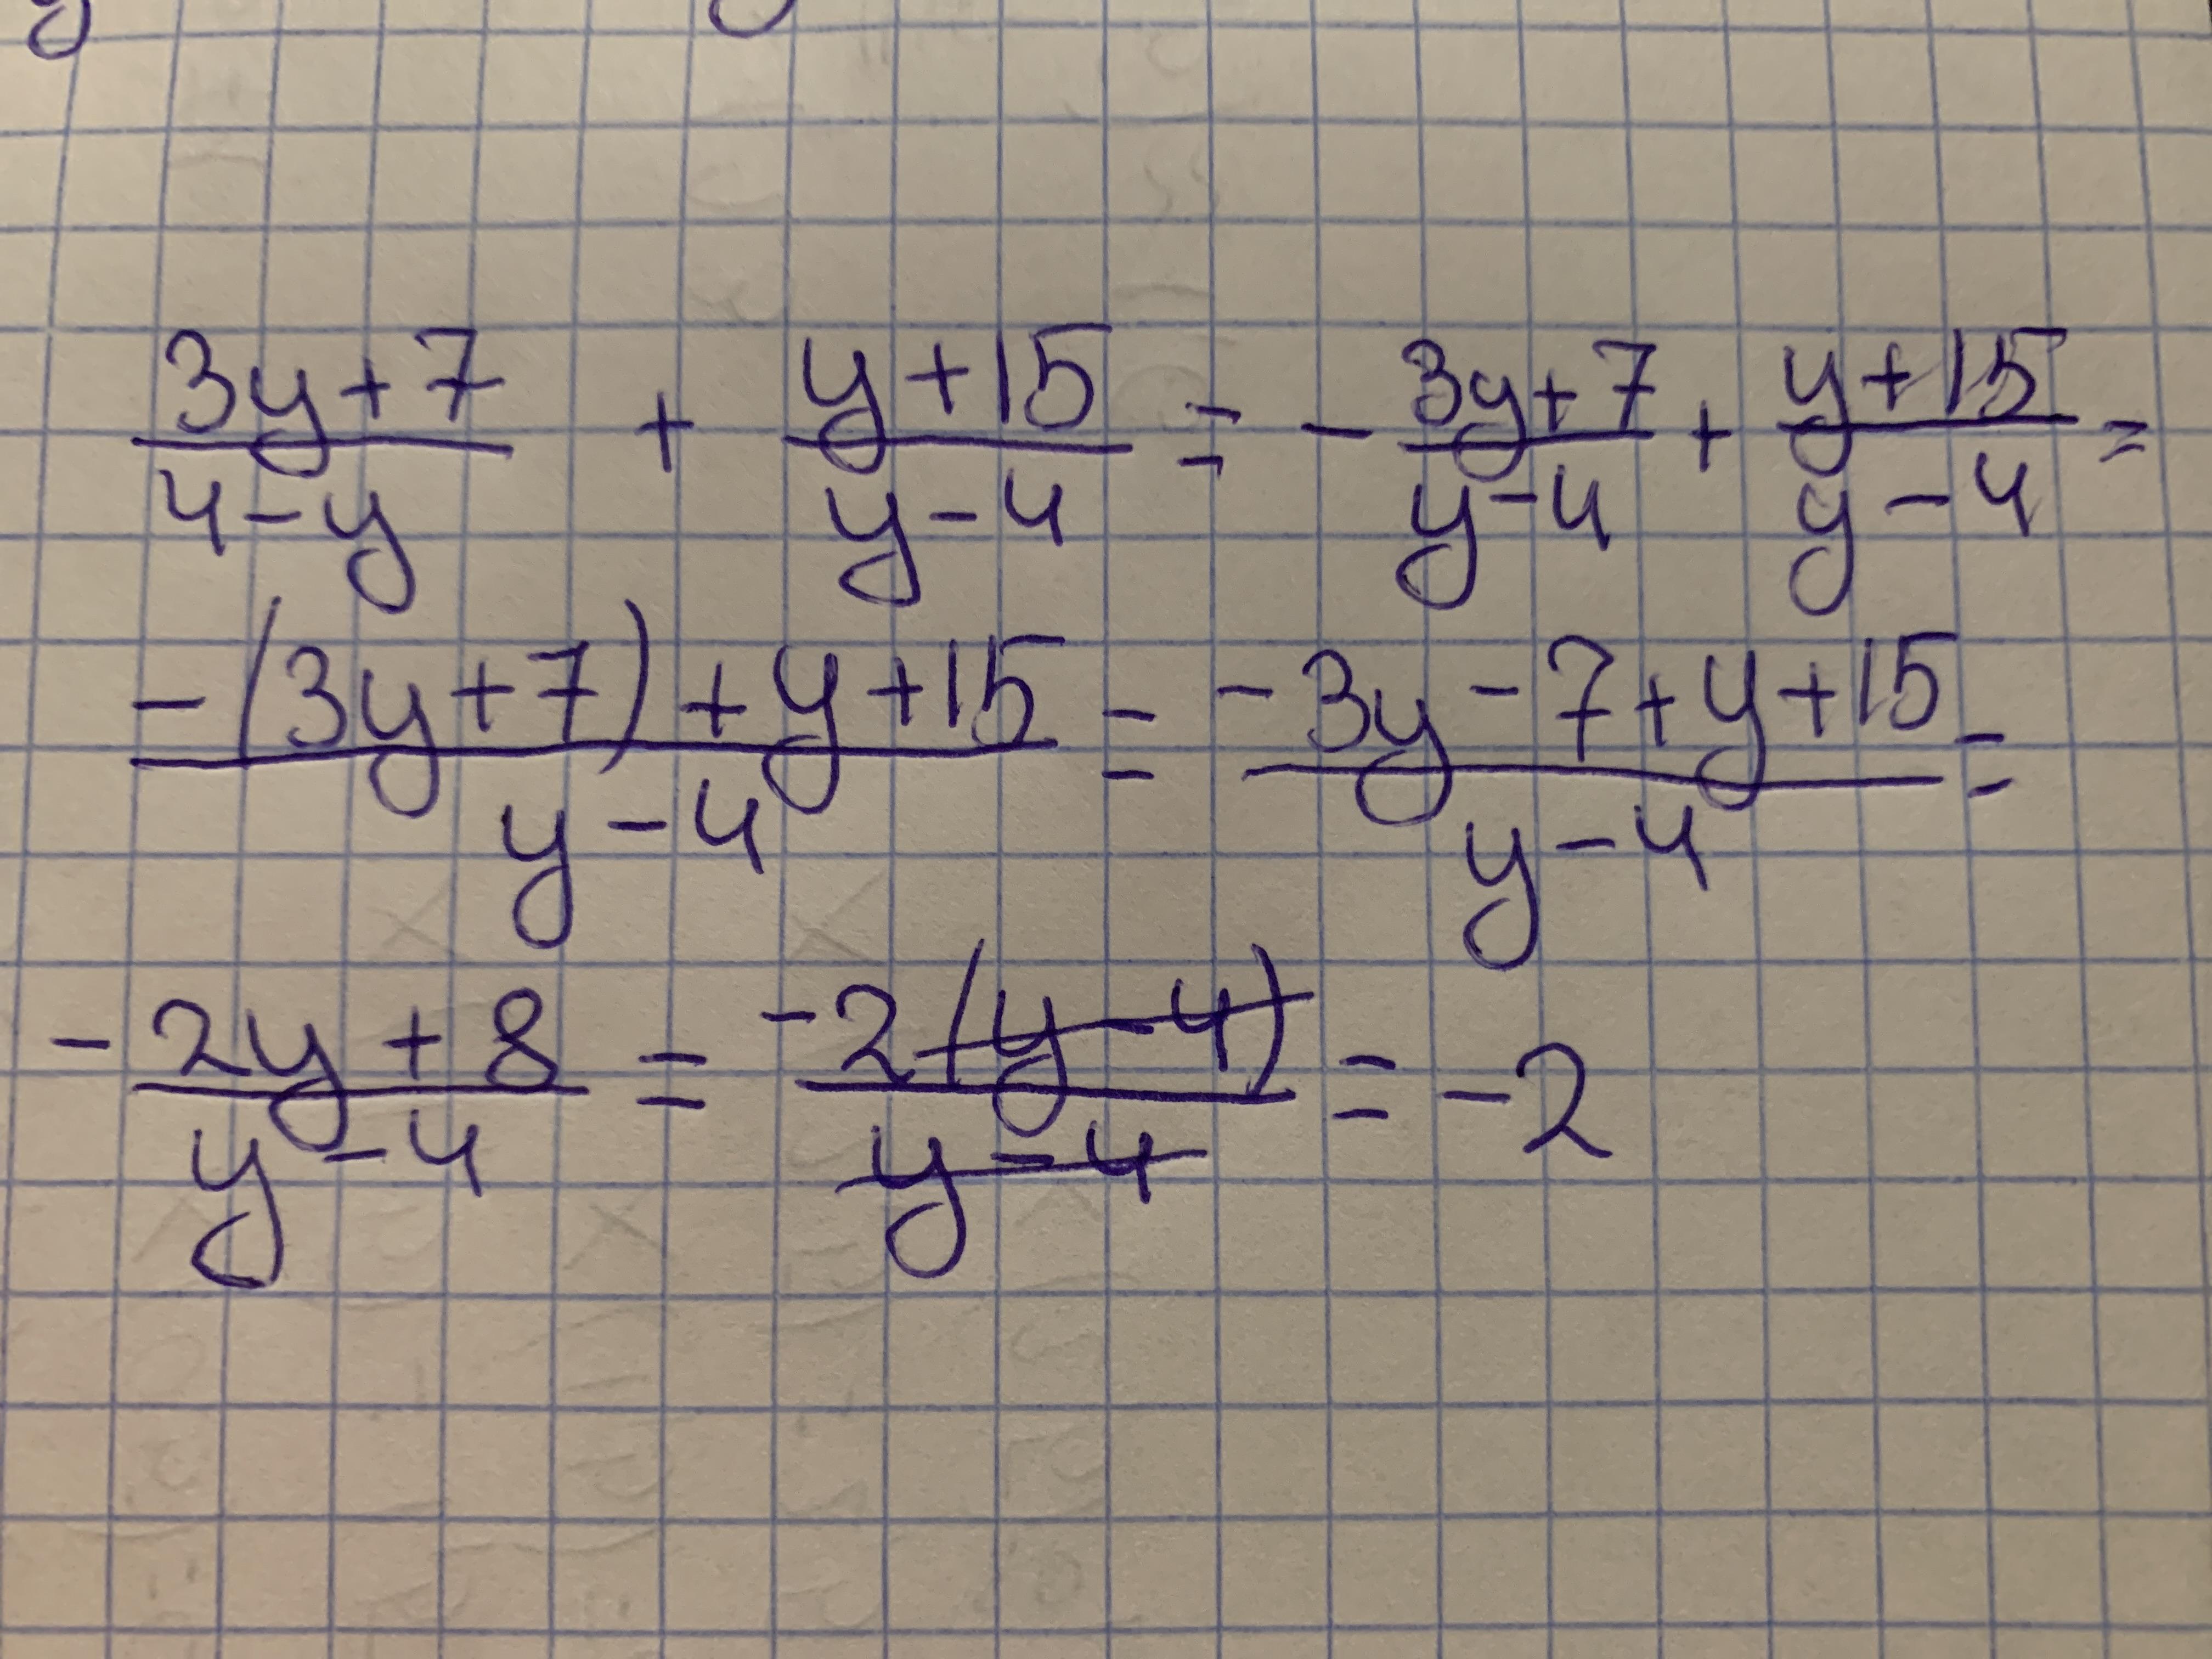 (3y+7)/(4-y) + (y+15)/(y-4) = - (3y+7)/(y-4) + (y+15)/(y-4) =
(-(3y+7)+y+15)/(y-4) = (-3y-7+y+15)/(y-4) =
(-2y+8)/(y-4) = (-2(y-4))/(y-4) = -2